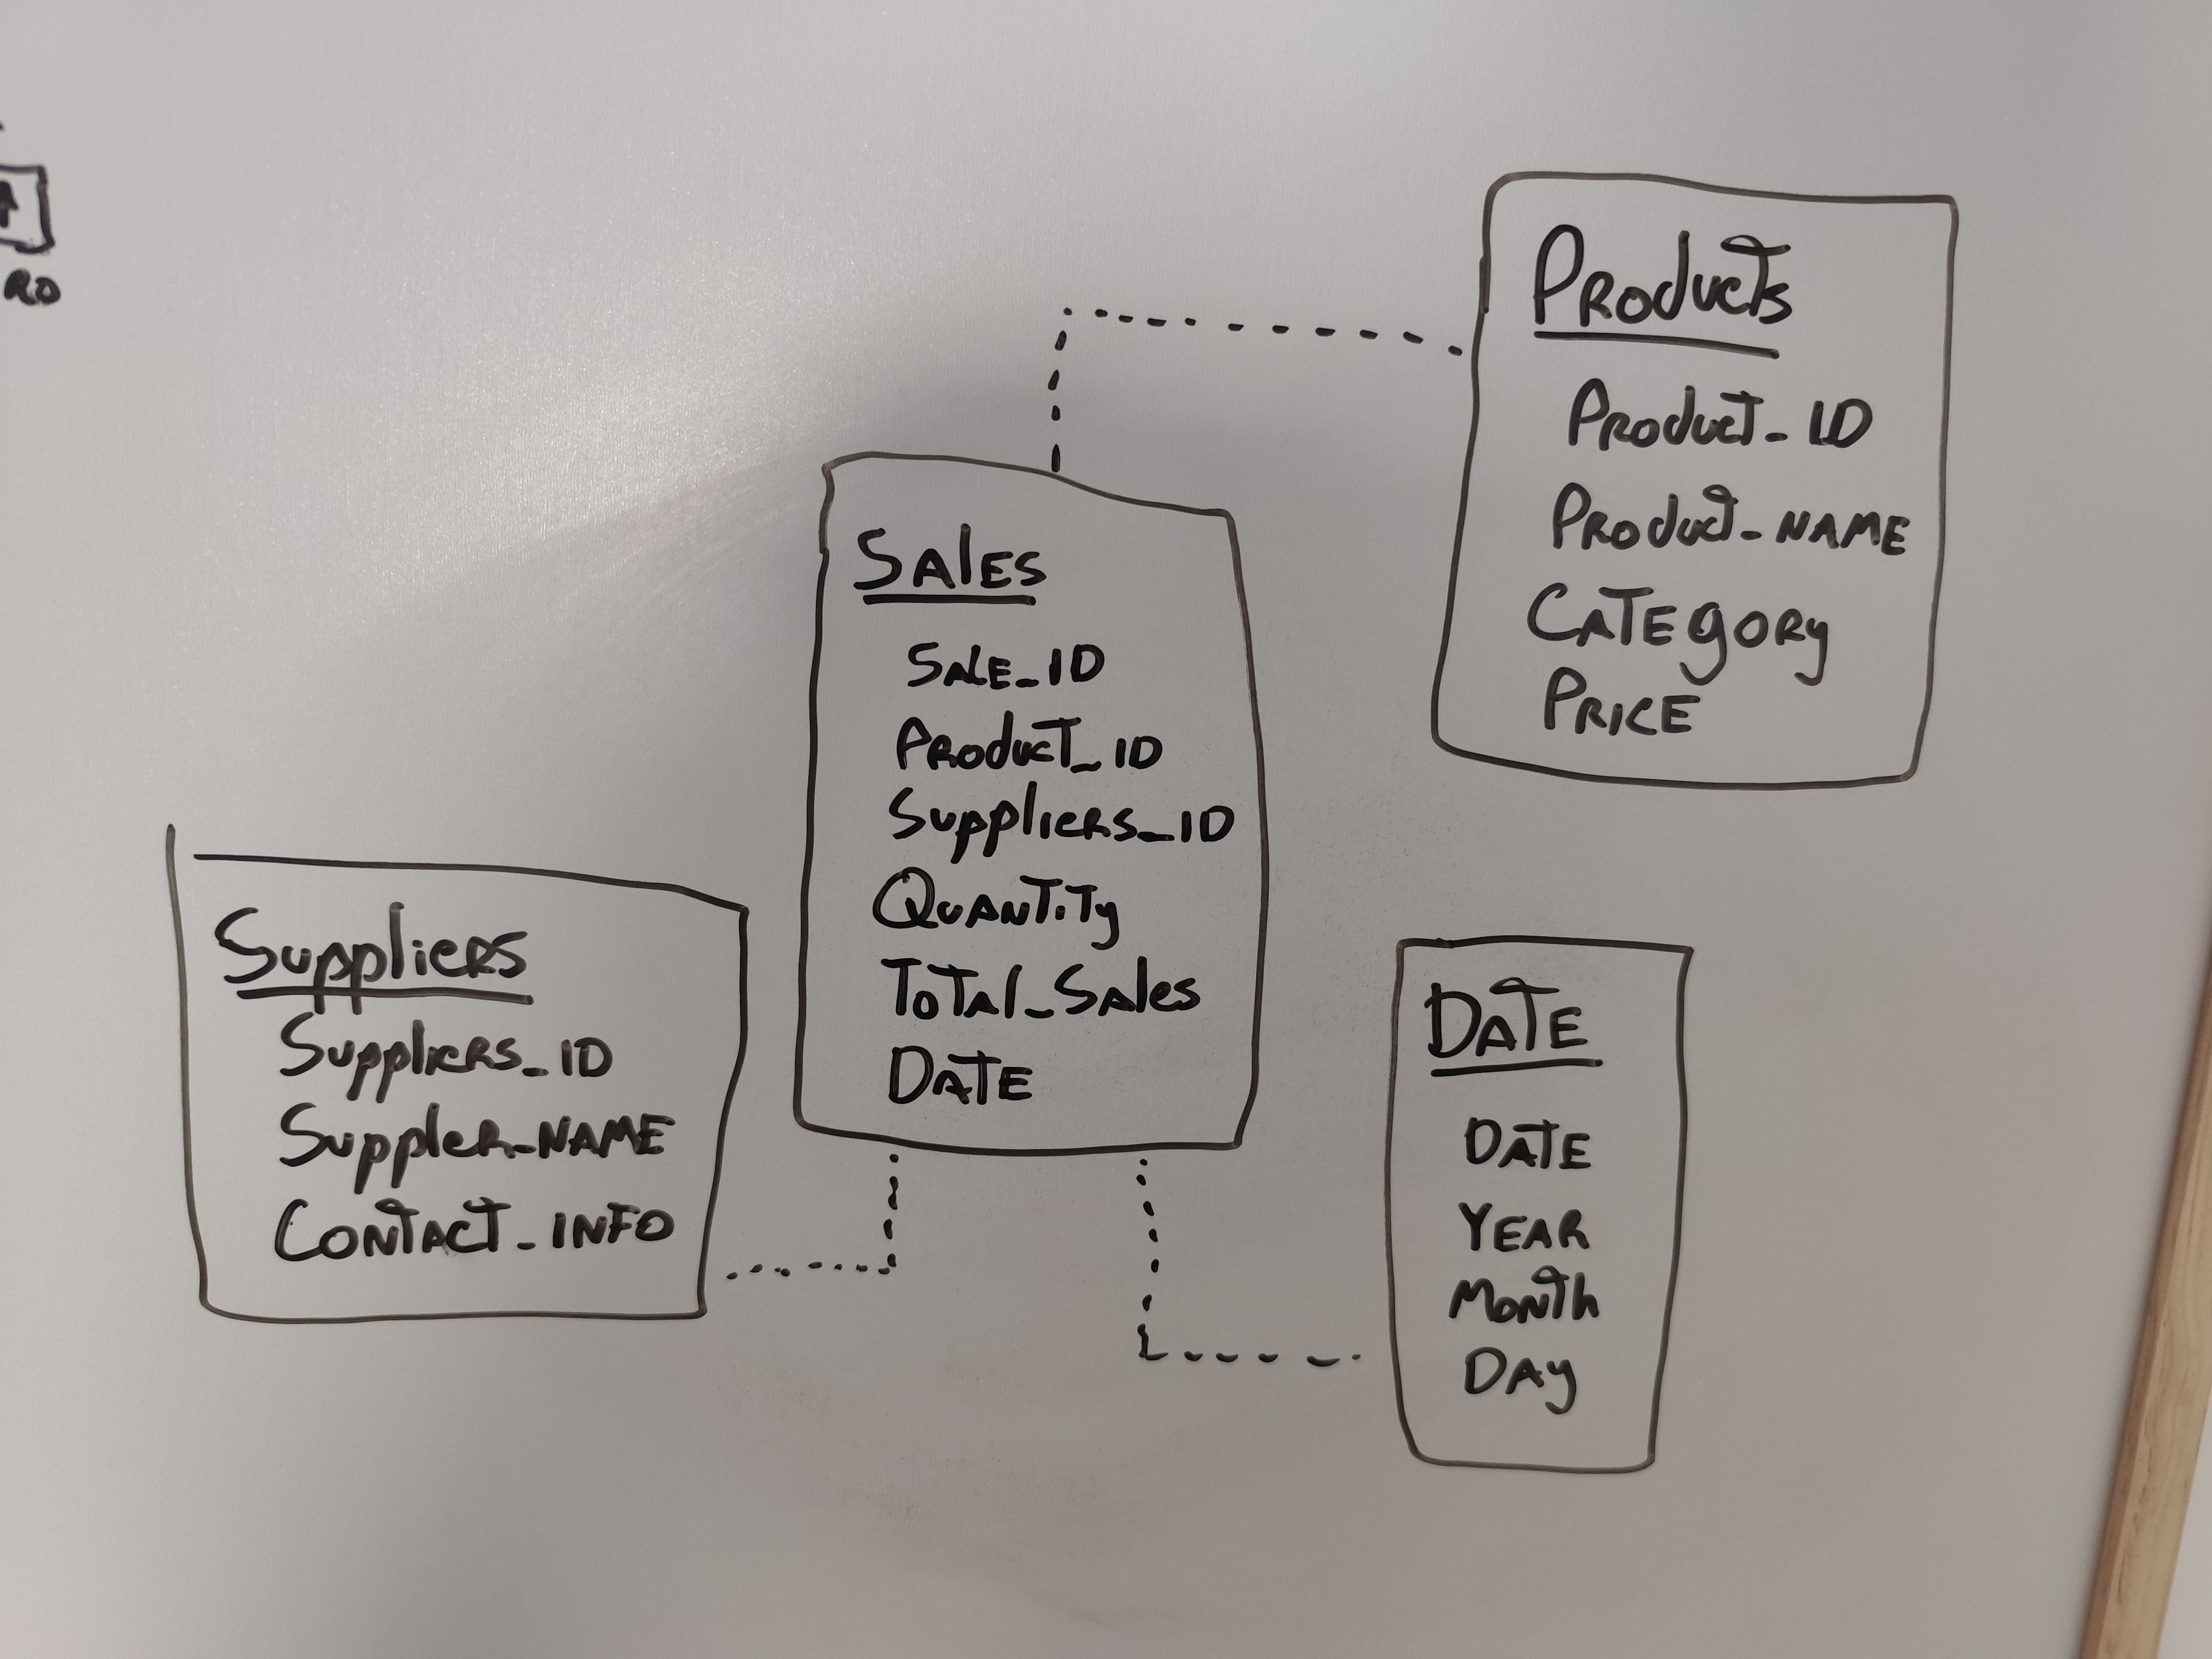 RD
Products
Product_ID
Product_NAME
CATEgORy
PRICE
SAlES
SALE_ID
PRoduct_ID
Suppliers_ID
QUANTITy
ToTAl_SAles
DATE
Suppliers
Suppliers_ID
Suppler_NAME
CONTACT_INFO
DATE
DATE
YEAR
MONTh
DAy